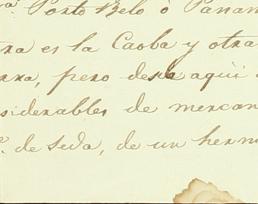 Porto Belo ó Panam
tra es la Caoba y otra
rra, pero desde aquí
siderables de mercan
de seda, de un herm